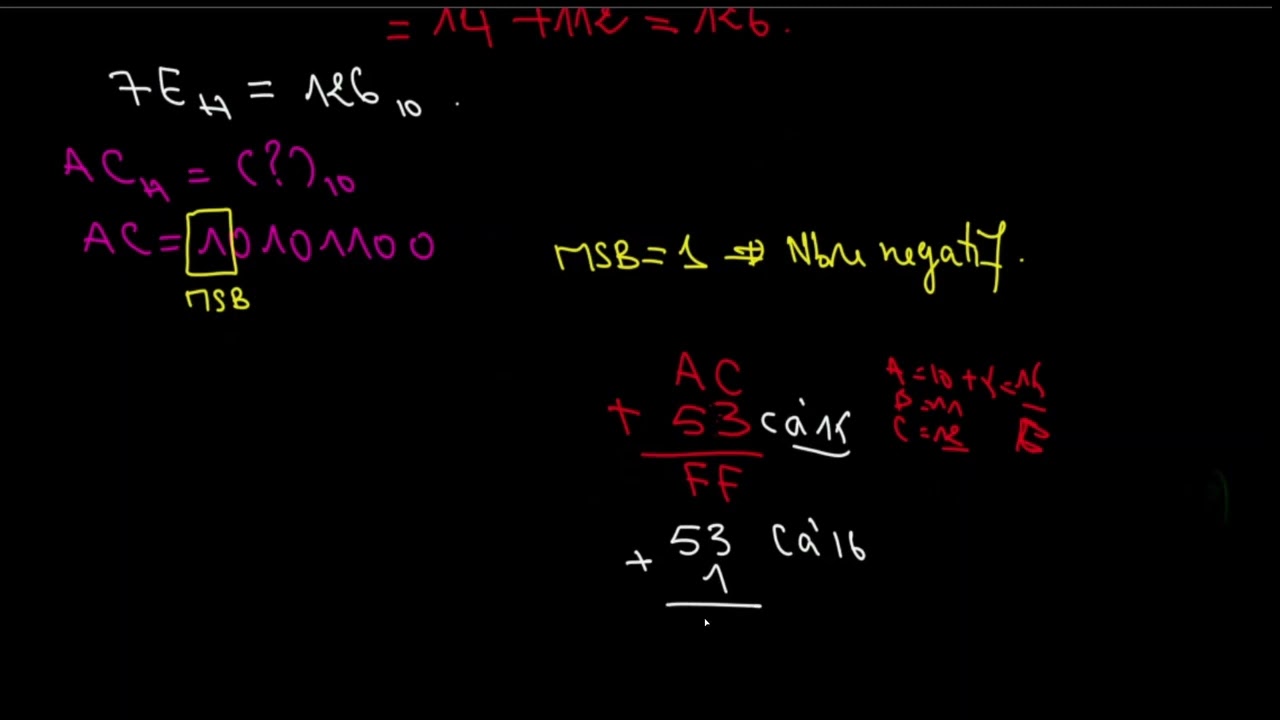 = 14 + 112 = 126.
7E H = 126 10 .
AC H = (?) 10
AC = 10101100
MSB
MSB = 1 => Nbre negatif.
AC
+ 53 cà15
FF
A = 10 + x = 15
B = 11
C = 12
+ 53 Cà16
1